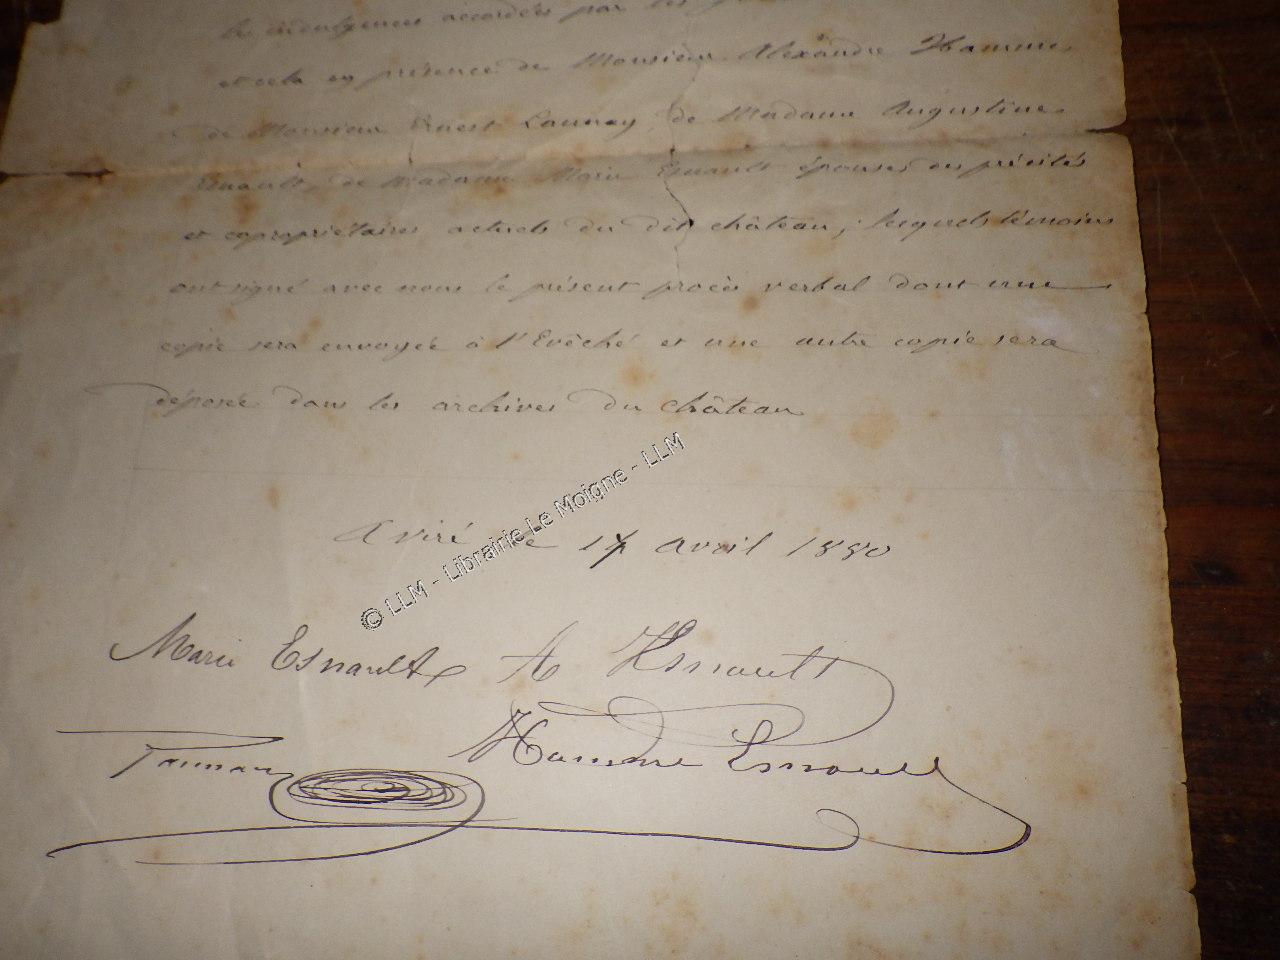 les indulgences accordées par les
et cela en présence de Monsieur Alexandre Hamme
de Monsieur Ernest Launay, de Madame Augustine
Esnault, de Madame Marie Esnault épouses des précités
et copropriétaires actuels du dit château; lesquels témoins
ont signé avec nous le présent procès verbal dont une
copie sera envoyée à l'Evêché et une autre copie sera
déposée dans les archives du château
Aviré le 14 avril 1880
Marie Esnault A Esnault
Hamme Esnault
© LLM - Librairie Le Moigne - LLM